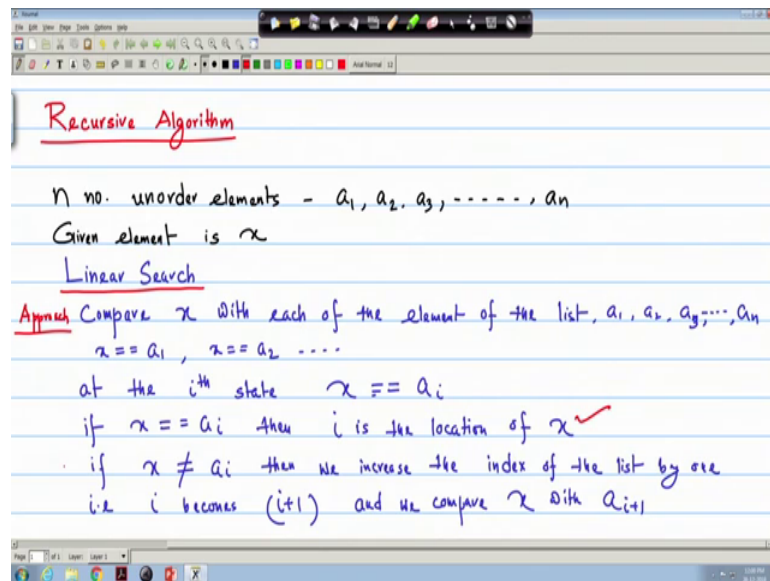 Journal
File Edit View Page Tools Options Help
Arial Normal 12
Recursive Algorithm
n no. unorder elements - a₁, a₂, a₃, ------, aₙ
Given element is x
Linear Search
Approach Compare x with each of the element of the list, a₁, a₂, a₃, ..., aₙ
x == a₁, x == a₂ ....
at the iᵗʰ state x == aᵢ
if x == aᵢ then i is the location of x
if x ≠ aᵢ then we increase the index of the list by one
i.e i becomes (i+1) and we compare x with aᵢ₊₁
Page 1 of 1 Layer: Layer 1